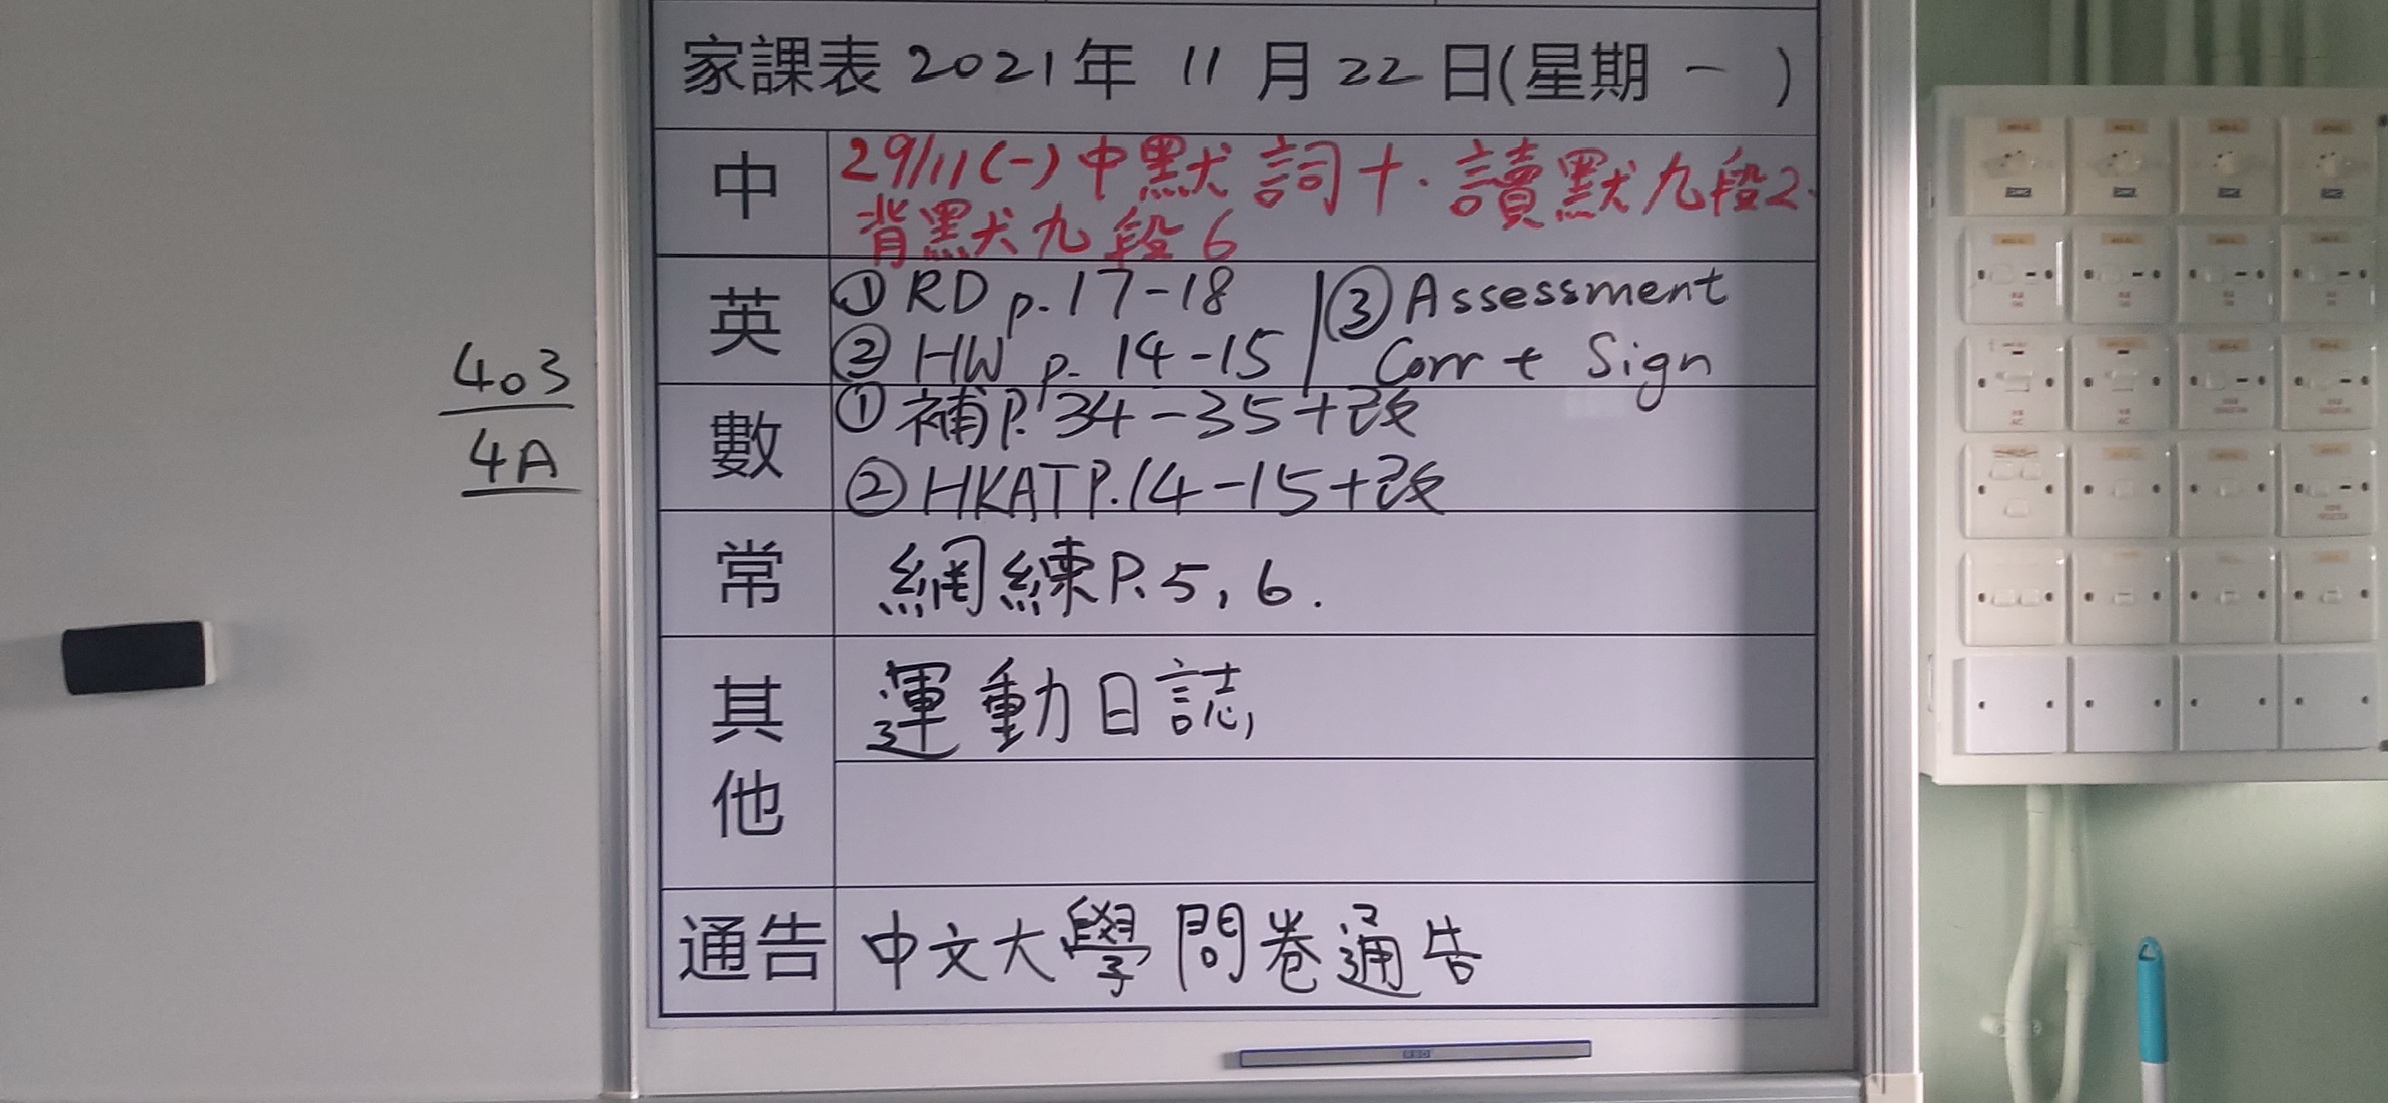 家課表 2021年 11月22日(星期一)
中
29/11(一)中默 詞十.讀默九段2.
背默九段6
英
①RD p.17-18
②HW p.14-15
③Assessment
Corr + Sign
數
①補P.34-35+改
②HKAT P.14-15+改
常
網練P.5,6.
其他
運動日誌,
通告
中文大學問卷通告
403
4A